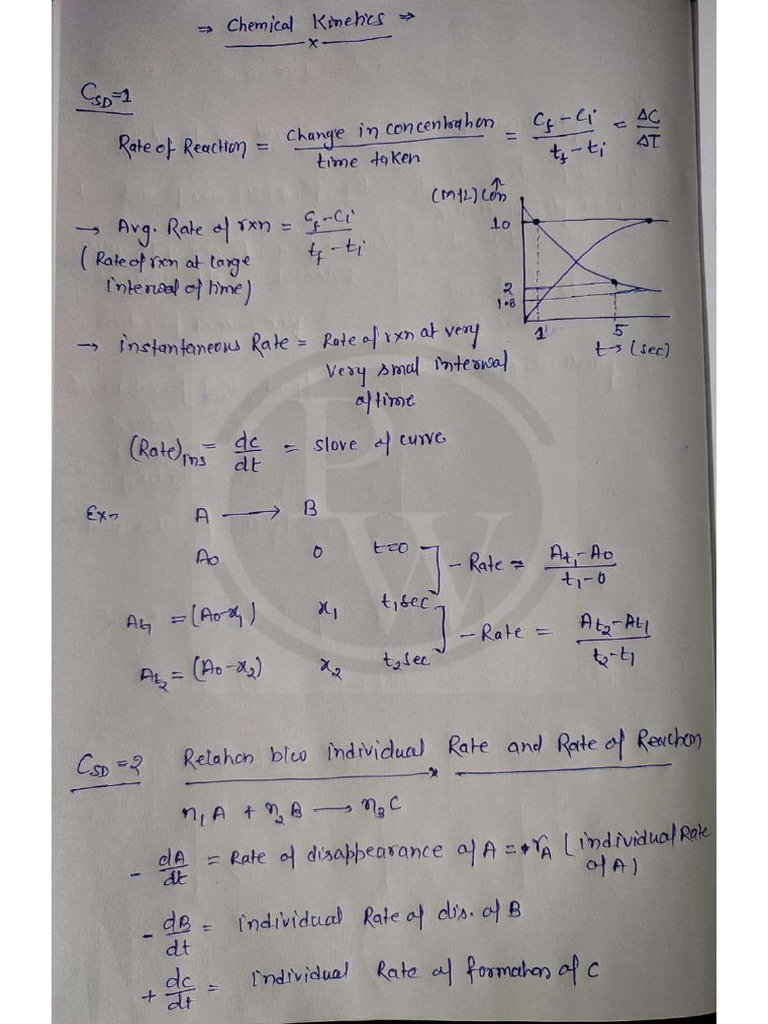 ⇒ Chemical Kinetics ⇒
C_SD=1
Rate of Reaction = Change in concentration / time taken = (C_f - C_i) / (t_f - t_i) = ΔC / ΔT
(M/L) Con
→ Avg. Rate of rxn = (C_f - C_i) / (t_f - t_i)
(Rate of rxn at large
interval of time)
10
2
1.8
1 5
t→ (sec)
→ instantaneous Rate = Rate of rxn at very
very small interval
of time
(Rate)ins = dc/dt = slove of curve
Ex→ A ⟶ B
A0 0 t=0
- Rate = (At1 - A0) / (t1 - 0)
At1 = (A0-x1) x1 t1 sec
- Rate = (At2 - At1) / (t2 - t1)
At2 = (A0-x2) x2 t2 sec
PW
C_SD=2 Relation b/w individual Rate and Rate of Reaction
n1 A + n2 B ⟶ n3 C
- dA/dt = Rate of disappearance of A = rA (individual Rate
of A)
- dB/dt = individual Rate of dis. of B
+ dc/dt = individual Rate of formation of C